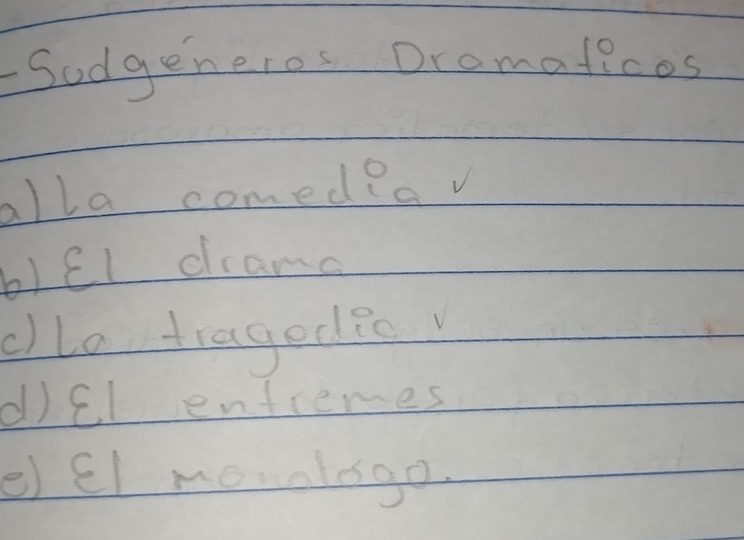 - Sudgéneros Dramaticos
a) La comedia ✓
b) El drama
c) La tragedia ✓
d) El entremes
e) El monológo.